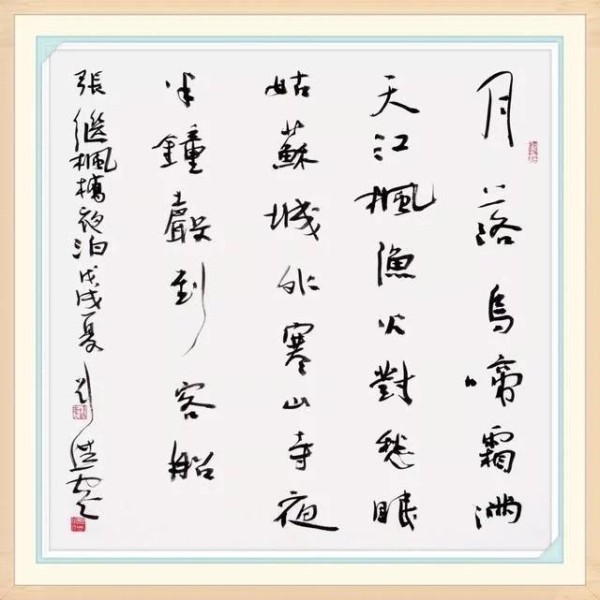 月落烏啼霜滿
天江楓漁火對愁眠
姑蘇城外寒山寺夜
半鐘聲到客船
張繼楓橋夜泊戊戌夏